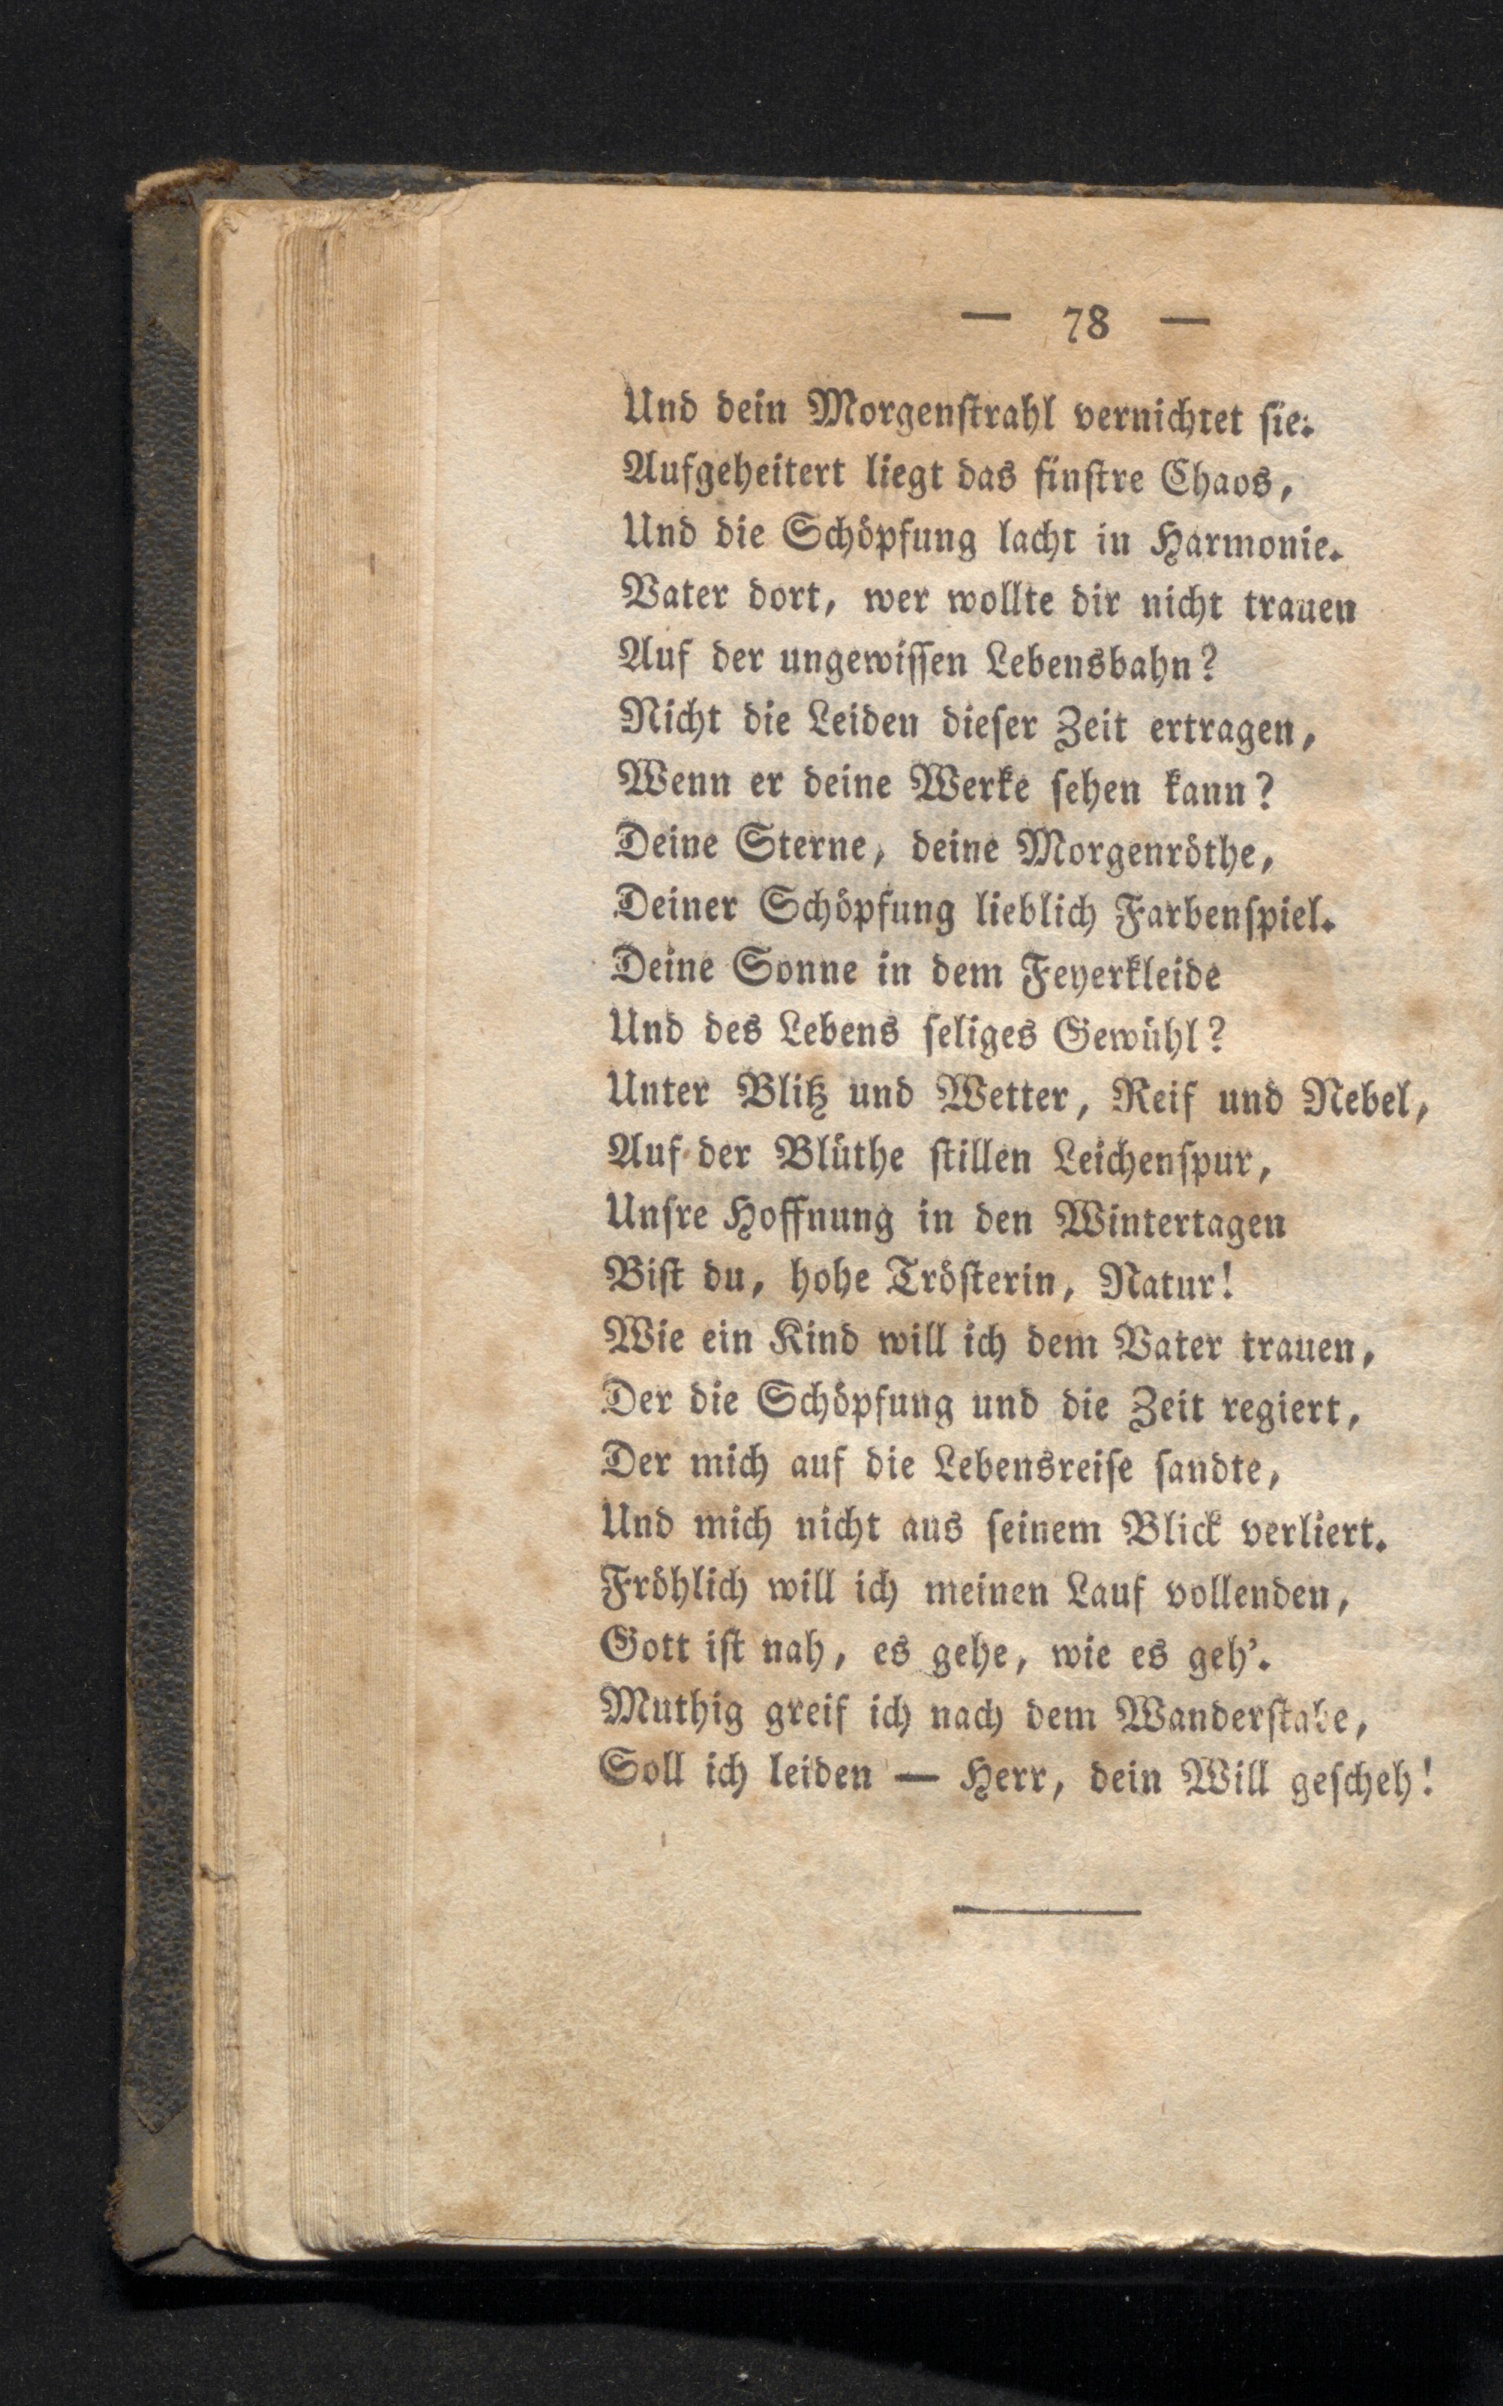 — 78 —
Und dein Morgenſtrahl vernichtet ſie.
Aufgeheitert liegt das finſtre Chaos,
Und die Schöpfung lacht in Harmonie.
Vater dort, wer wollte dir nicht trauen
Auf der ungewiſſen Lebensbahn?
Nicht die Leiden dieſer Zeit ertragen,
Wenn er deine Werke ſehen kann?
Deine Sterne, deine Morgenröthe,
Deiner Schöpfung lieblich Farbenſpiel.
Deine Sonne in dem Feyerkleide
Und des Lebens ſeliges Gewühl?
Unter Blitz und Wetter, Reif und Nebel,
Auf der Blüthe ſtillen Leichenſpur,
Unſre Hoffnung in den Wintertagen
Biſt du, hohe Tröſterin, Natur!
Wie ein Kind will ich dem Vater trauen,
Der die Schöpfung und die Zeit regiert,
Der mich auf die Lebensreiſe ſandte,
Und mich nicht aus ſeinem Blick verliert.
Fröhlich will ich meinen Lauf vollenden,
Gott iſt nah, es gehe, wie es geh'.
Muthig greif ich nach dem Wanderſtabe,
Soll ich leiden — Herr, dein Will geſcheh!